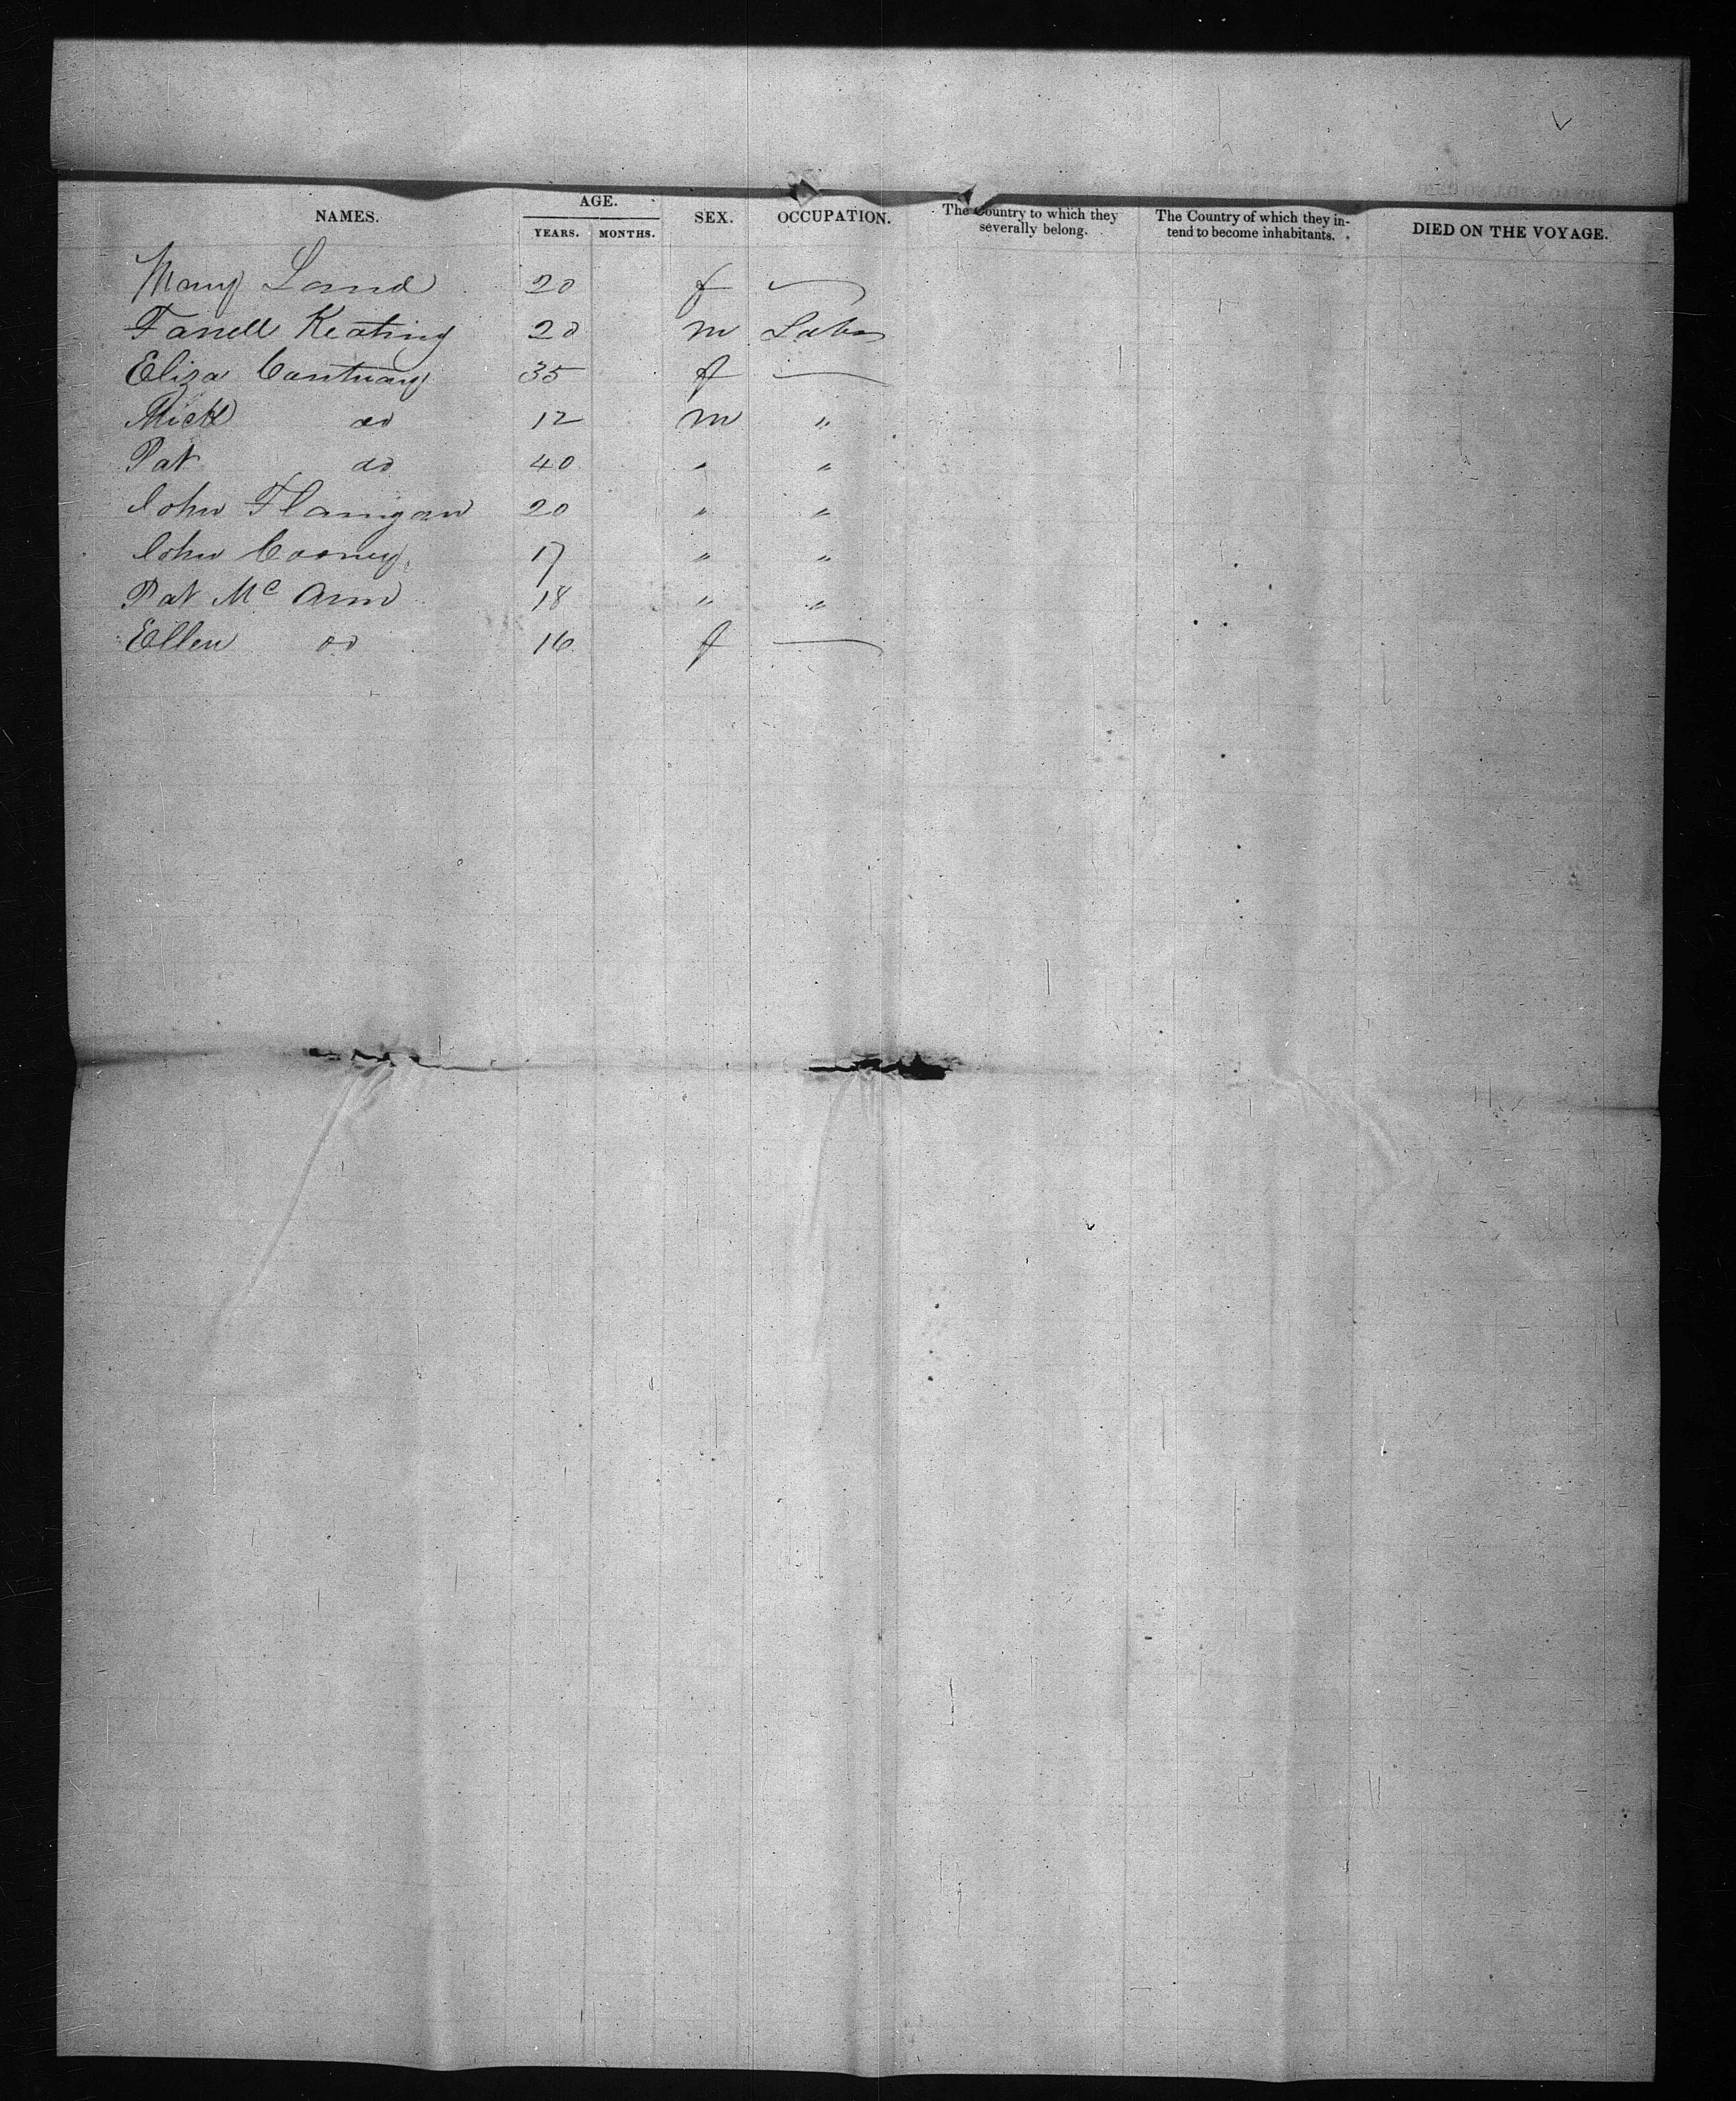 NAMES. AGE. YEARS. MONTHS. SEX. OCCUPATION. The Country to which they severally belong. The Country of which they intend to become inhabitants. DIED ON THE VOYAGE.
Mary Land 20 f —
Farrell Keating 20 m Labr
Eliza 35 f —
Mick do 12 m "
Pat do 40 " "
John Flanigan 20 " "
John Cooney 17 " "
Pat Mc Ann 18 " "
Ellen do 16 f —